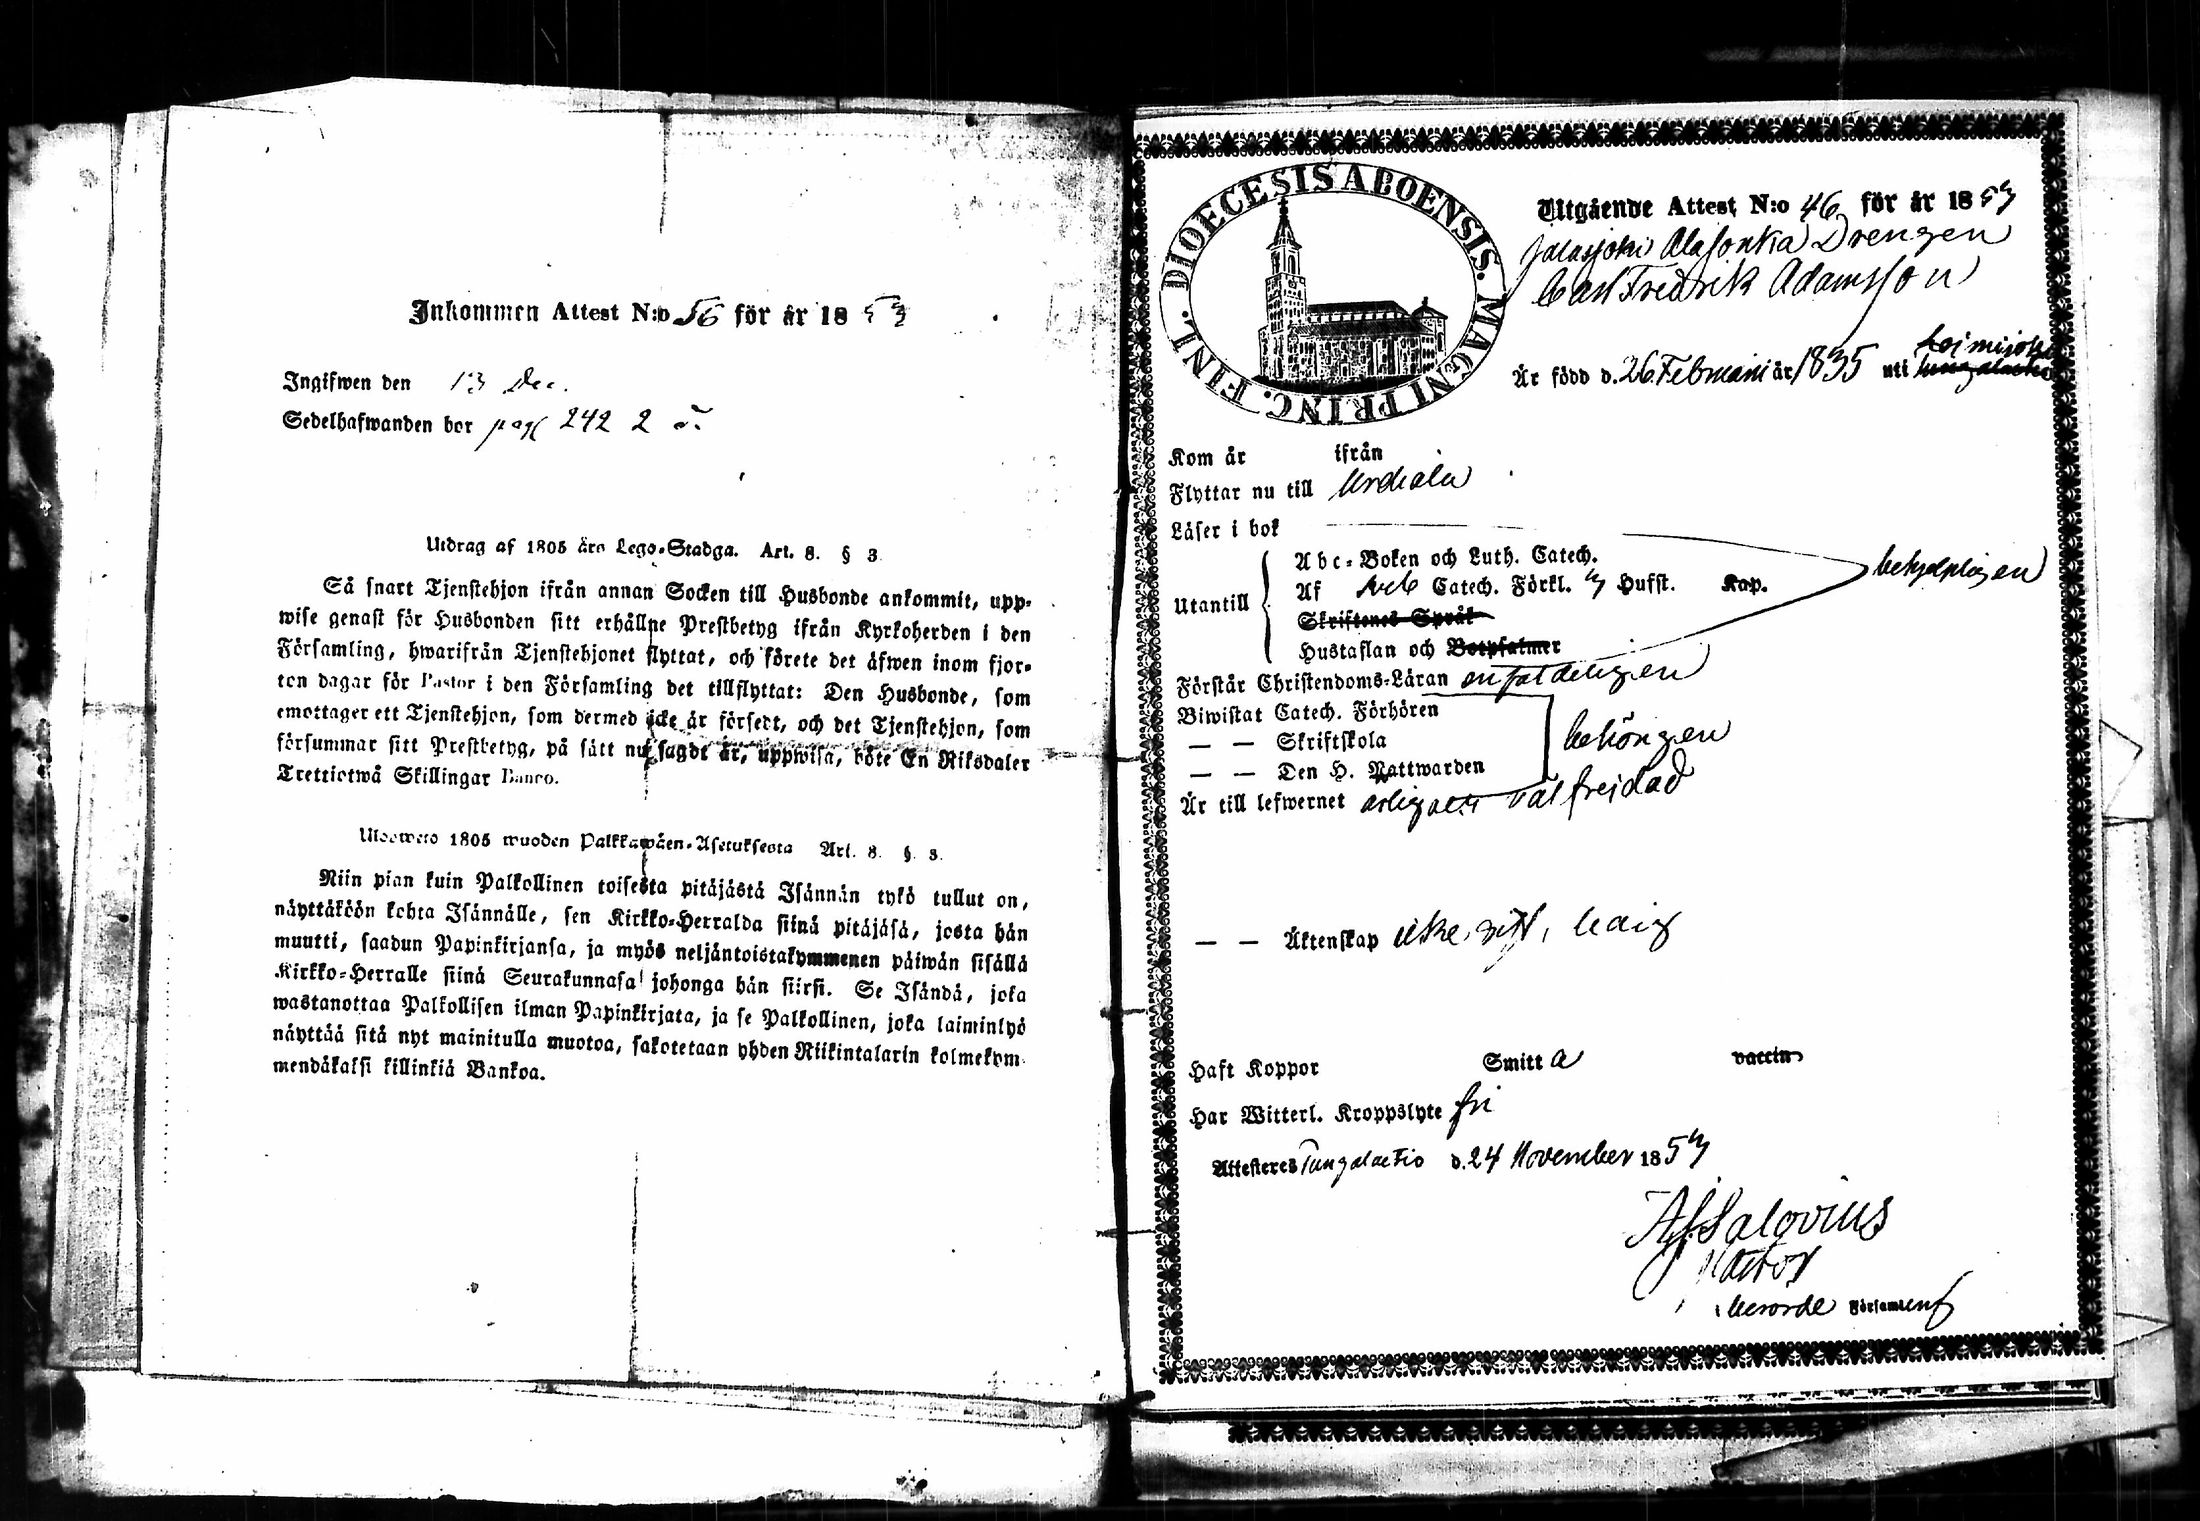 Inkommen Attest N:o 56 för år 1853
Ingifwen den 13 Dec.
Sedelhafwanden bor pag 242 2
Utdrag af 1805 års Lego-Stadga. Art. 8. § 3.
Så snart Tjenstehjon ifrån annan Socken till Husbonde ankommit, upp-
wise genast för Husbonden sitt erhållne Prestbetyg ifrån Kyrkoherden i den
Församling, hwarifrån Tjenstehjonet flyttat, och förete det äfwen inom fjor-
ton dagar för Pastor i den Församling det tillflyttat: Den Husbonde, som
emottager ett Tjenstehjon, som dermed icke är försedt, och det Tjenstehjon, som
försummar sitt Prestbetyg, på sätt nu sagdt är, uppwisa, böte En Riksdaler
Trettiotwå Skillingar Banco.
Ulosweto 1805 wuoden Palkkawäen-Asetuksesta Art. 8. § 3.
Niin pian kuin Palkollinen toisesta pitäjästä Isännän tykö tullut on,
näyttäköön kohta Isännälle, sen Kirkko-Herralda siinä pitäjäsä, josta hän
muutti, saadun Papinkirjansa, ja myös neljäntoistakymmenen päiwän sisällä
Kirkko-Herralle siinä Seurakunnasa johonga hän siirsi. Se Isändä, joka
wastanottaa Palkollisen ilman Papinkirjata, ja se Palkollinen, joka laiminlyö
näyttää sitä nyt mainitulla muotoa, sakotetaan yhden Riikintalarin kolmekym
mendäkaksi killinkiä Bankoa.
DIOECESIS ABOENSIS. MAGNI PRINC. FINL.
Utgående Attest N:o 46 för år 1853
Jalasjoki Alasonka Drengen
Carl Fredrik Adamsson
Är född d. 26 Februarii år 1835 uti Loimijoki
Kom år ifrån
Flyttar nu till Urdiala
Läser i bok
Utantill
Abc-Boken och Luth. Catech.
Af Catech. Förkl. Hufst. Kap.
Skriftenes Språk
Hustaflan och Botpsalmer
behjelpligen
Förstår Christendoms-Läran enfaldeligen
Biwistat Catech. Förhören
— — Skriftskola
— — Den H. Nattwarden
behörigen
Är till lefwernet ärlig och välfrejdad
— — Äktenskap icke gift, ledig
Haft Koppor Smitta vaccin
Har Witterl. Kroppslyte fri
Attesteres d. 24 November 1853
A J Salovius
Pastor
berörde Församl